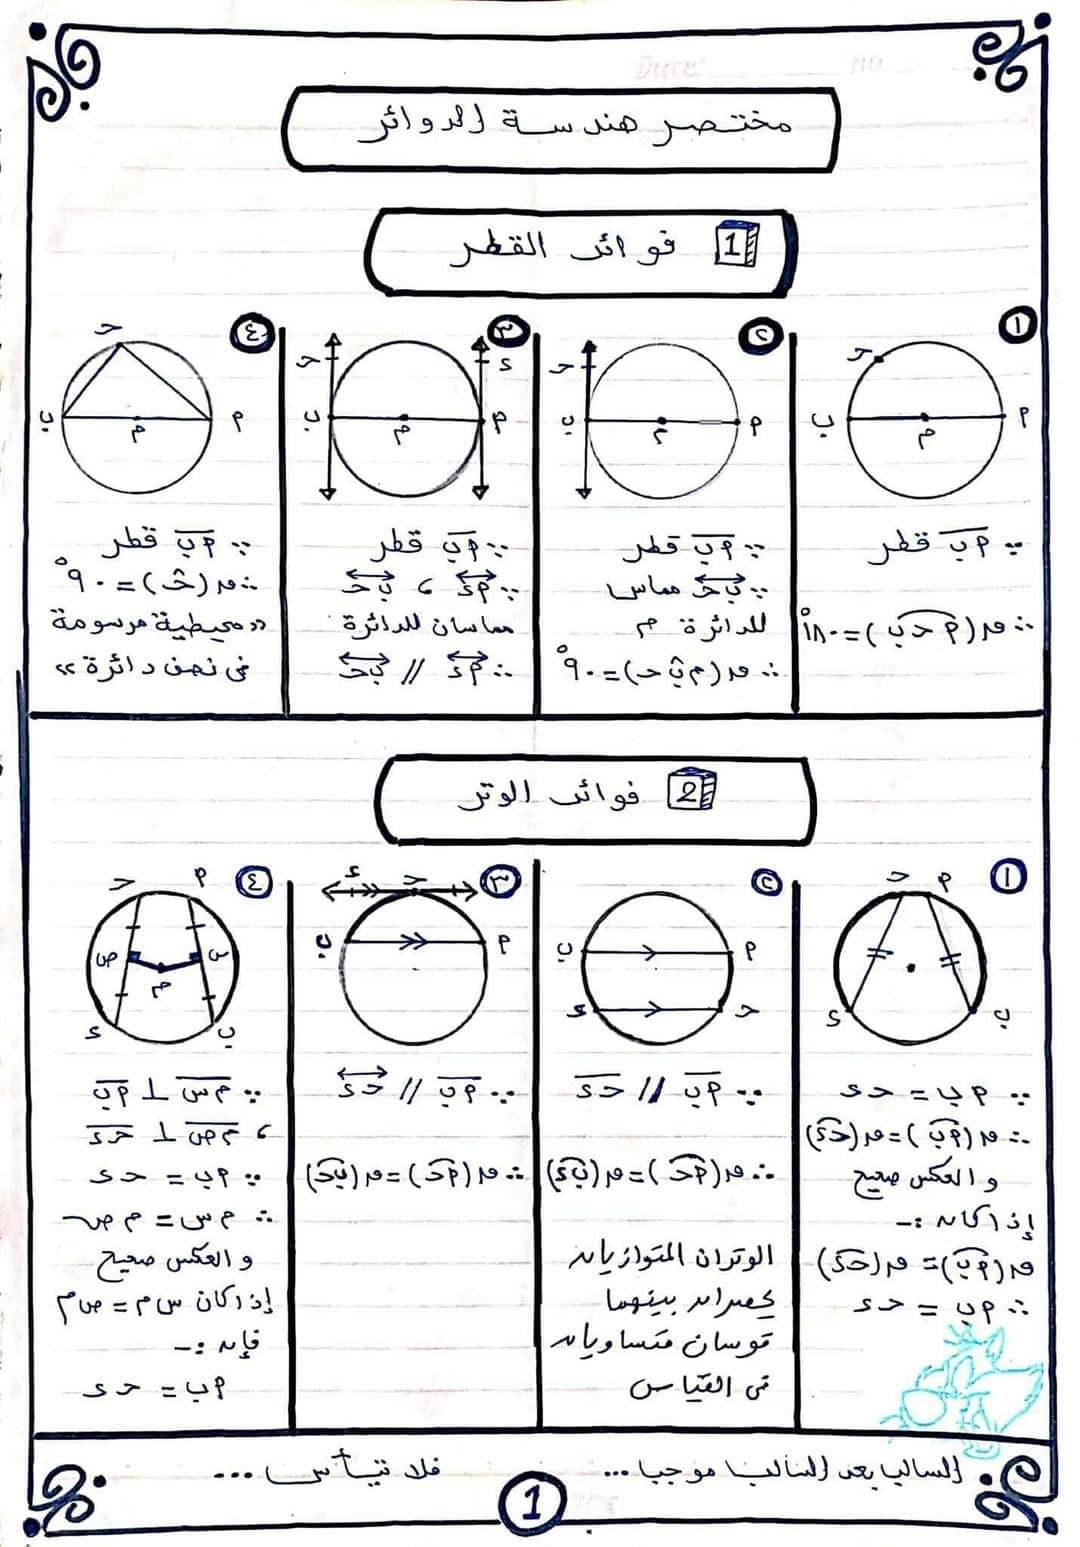 مختصر هندسة الدوائر
1 فوائد القطر
١
حـ
ب م P
∵ Pب قطر
∴ ق(P حـ ب) = ١٨٠°
٢
حـ
ب م P
∵ Pب قطر
∵ بحـ مماس
للدائرة م
∴ ق(م ب حـ) = ٩٠°
٣
حـ ء
ب م P
∵ Pب قطر
∵ Pء ، بحـ
مماسان للدائرة
∴ Pء // بحـ
٤
حـ
ب م P
∵ Pب قطر
∴ ق(حـ) = ٩٠°
«محيطية مرسومة
فى نصف دائرة»
2 فوائد الوتر
١
حـ P
ء ب
∵ Pب = حـء
∴ ق(Pب) = ق(حـء)
والعكس صحيح
إذا كان :-
ق(Pب) = ق(حـء)
∴ Pب = حـء
٢
ب P
ء حـ
∵ Pب // حـء
∴ ق(Pحـ) = ق(بء)
الوتران المتوازيان
يحصران بينهما
قوسان متساويان
فى القياس
٣
ء حـ
ب P
∵ Pب // حـء
∴ ق(Pحـ) = ق(بحـ)
٤
حـ P
ص م س
ء ب
∵ م س ⊥ Pب
، م ص ⊥ حـء
∵ Pب = حـء
∴ م س = م ص
والعكس صحيح
إذا كان س م = ص م
فإن :-
Pب = حـء
السالب بعد السالب موجب... فلا تيأس ...
1